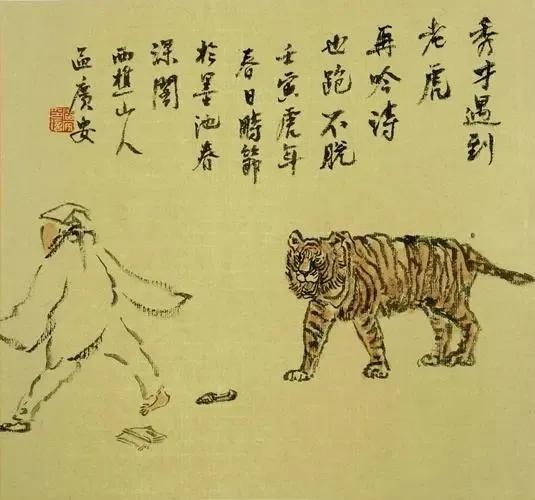 秀才遇到
老虎
再吟詩
也跑不脱
壬寅虎年
春日時節
於墨池春
深閣
西樵山人
孟廣安